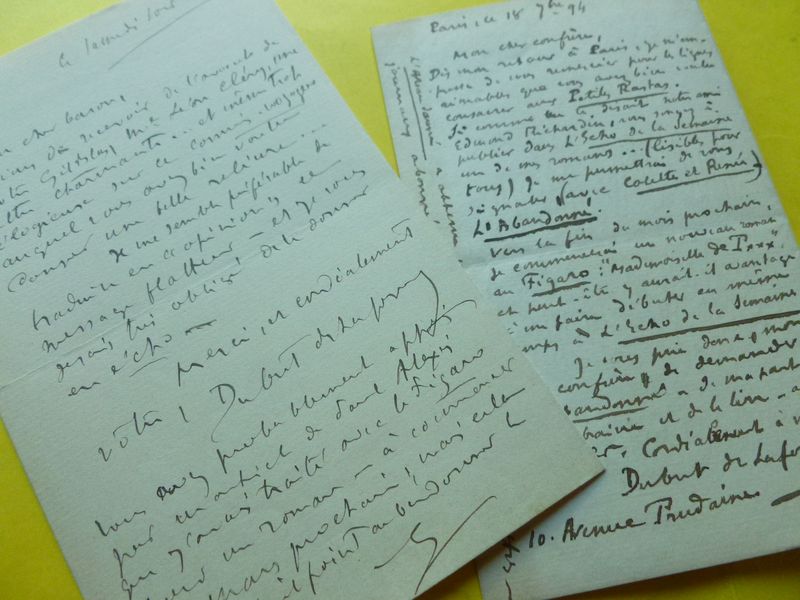 ce samedi soir
cher baron,
de recevoir de l'avocat de
Gil Blas, Me Léon Cléry, une
charmante... et même trop
élogieuse sur ce commis-voyageur
auquel vous avez bien voulu
donner une belle reliure...
Je me semble préférable de
traduire en "opinion" ce
message flatteur — et je vous
serais très obligé de le donner
en écho —
Merci, et cordialement
vôtre, Dubut de Laforest
Vous avez probablement appris
par un article de Paul Alexis
que j'avais traité avec le Figaro
pour un roman — à commencer
mars prochain; mais cela
point abandonner le
Paris, ce 18 9bre 94
Mon cher confrère,
Dès mon retour à Paris, je m'em-
presse de vous remercier pour les lignes
aimables que vous avez bien voulu
consacrer aux Petites Rastas.
Si comme me le disait notre ami
Edmond Richardin, vous songez à
publier dans L'Echo de la Semaine
un de mes romans... (lisibles pour
tous) je me permettrai de vous
signaler (avec Colette et Renée)
L'Abandonné.
Vers la fin du mois prochain,
je commencerai un nouveau roman
au Figaro: "Mademoiselle de Txxx",
et peut-être y aurait-il avantage
à me faire débuter en même
temps à L'Echo de la Semaine
Je vous prie donc, mon
confrère, de demander
abandonné — de ma part
librairie et de le lire — à
Cordialement à v
Dubut de Lafo
10. Avenue Trudaine
L'Abandonné a
journaux abonné